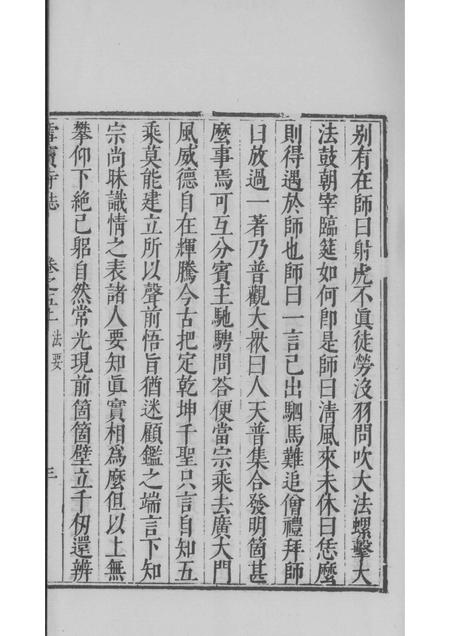 别有在師曰射虎不眞徒勞没羽問吹大法螺擊大
法鼓朝宰臨筵如何卽是師曰淸風來未休曰恁麽
則得遇於師也師曰一言已出駟馬難追僧禮拜師
曰放過一著乃普觀大衆曰人天普集合發明箇甚
麽事焉可互分賓主馳騁問荅便當宗乘去廣大門
風威德自在輝騰今古把定乾坤千聖只言自知五
乘莫能建立所以聲前悟旨猶迷顧鑑之端言下知
宗尚昧識情之表諸人要知眞實相爲麽但以上無
攀仰下絶己躬自然常光現前箇箇壁立千仞還辨
寺志 卷之五上 法要 三